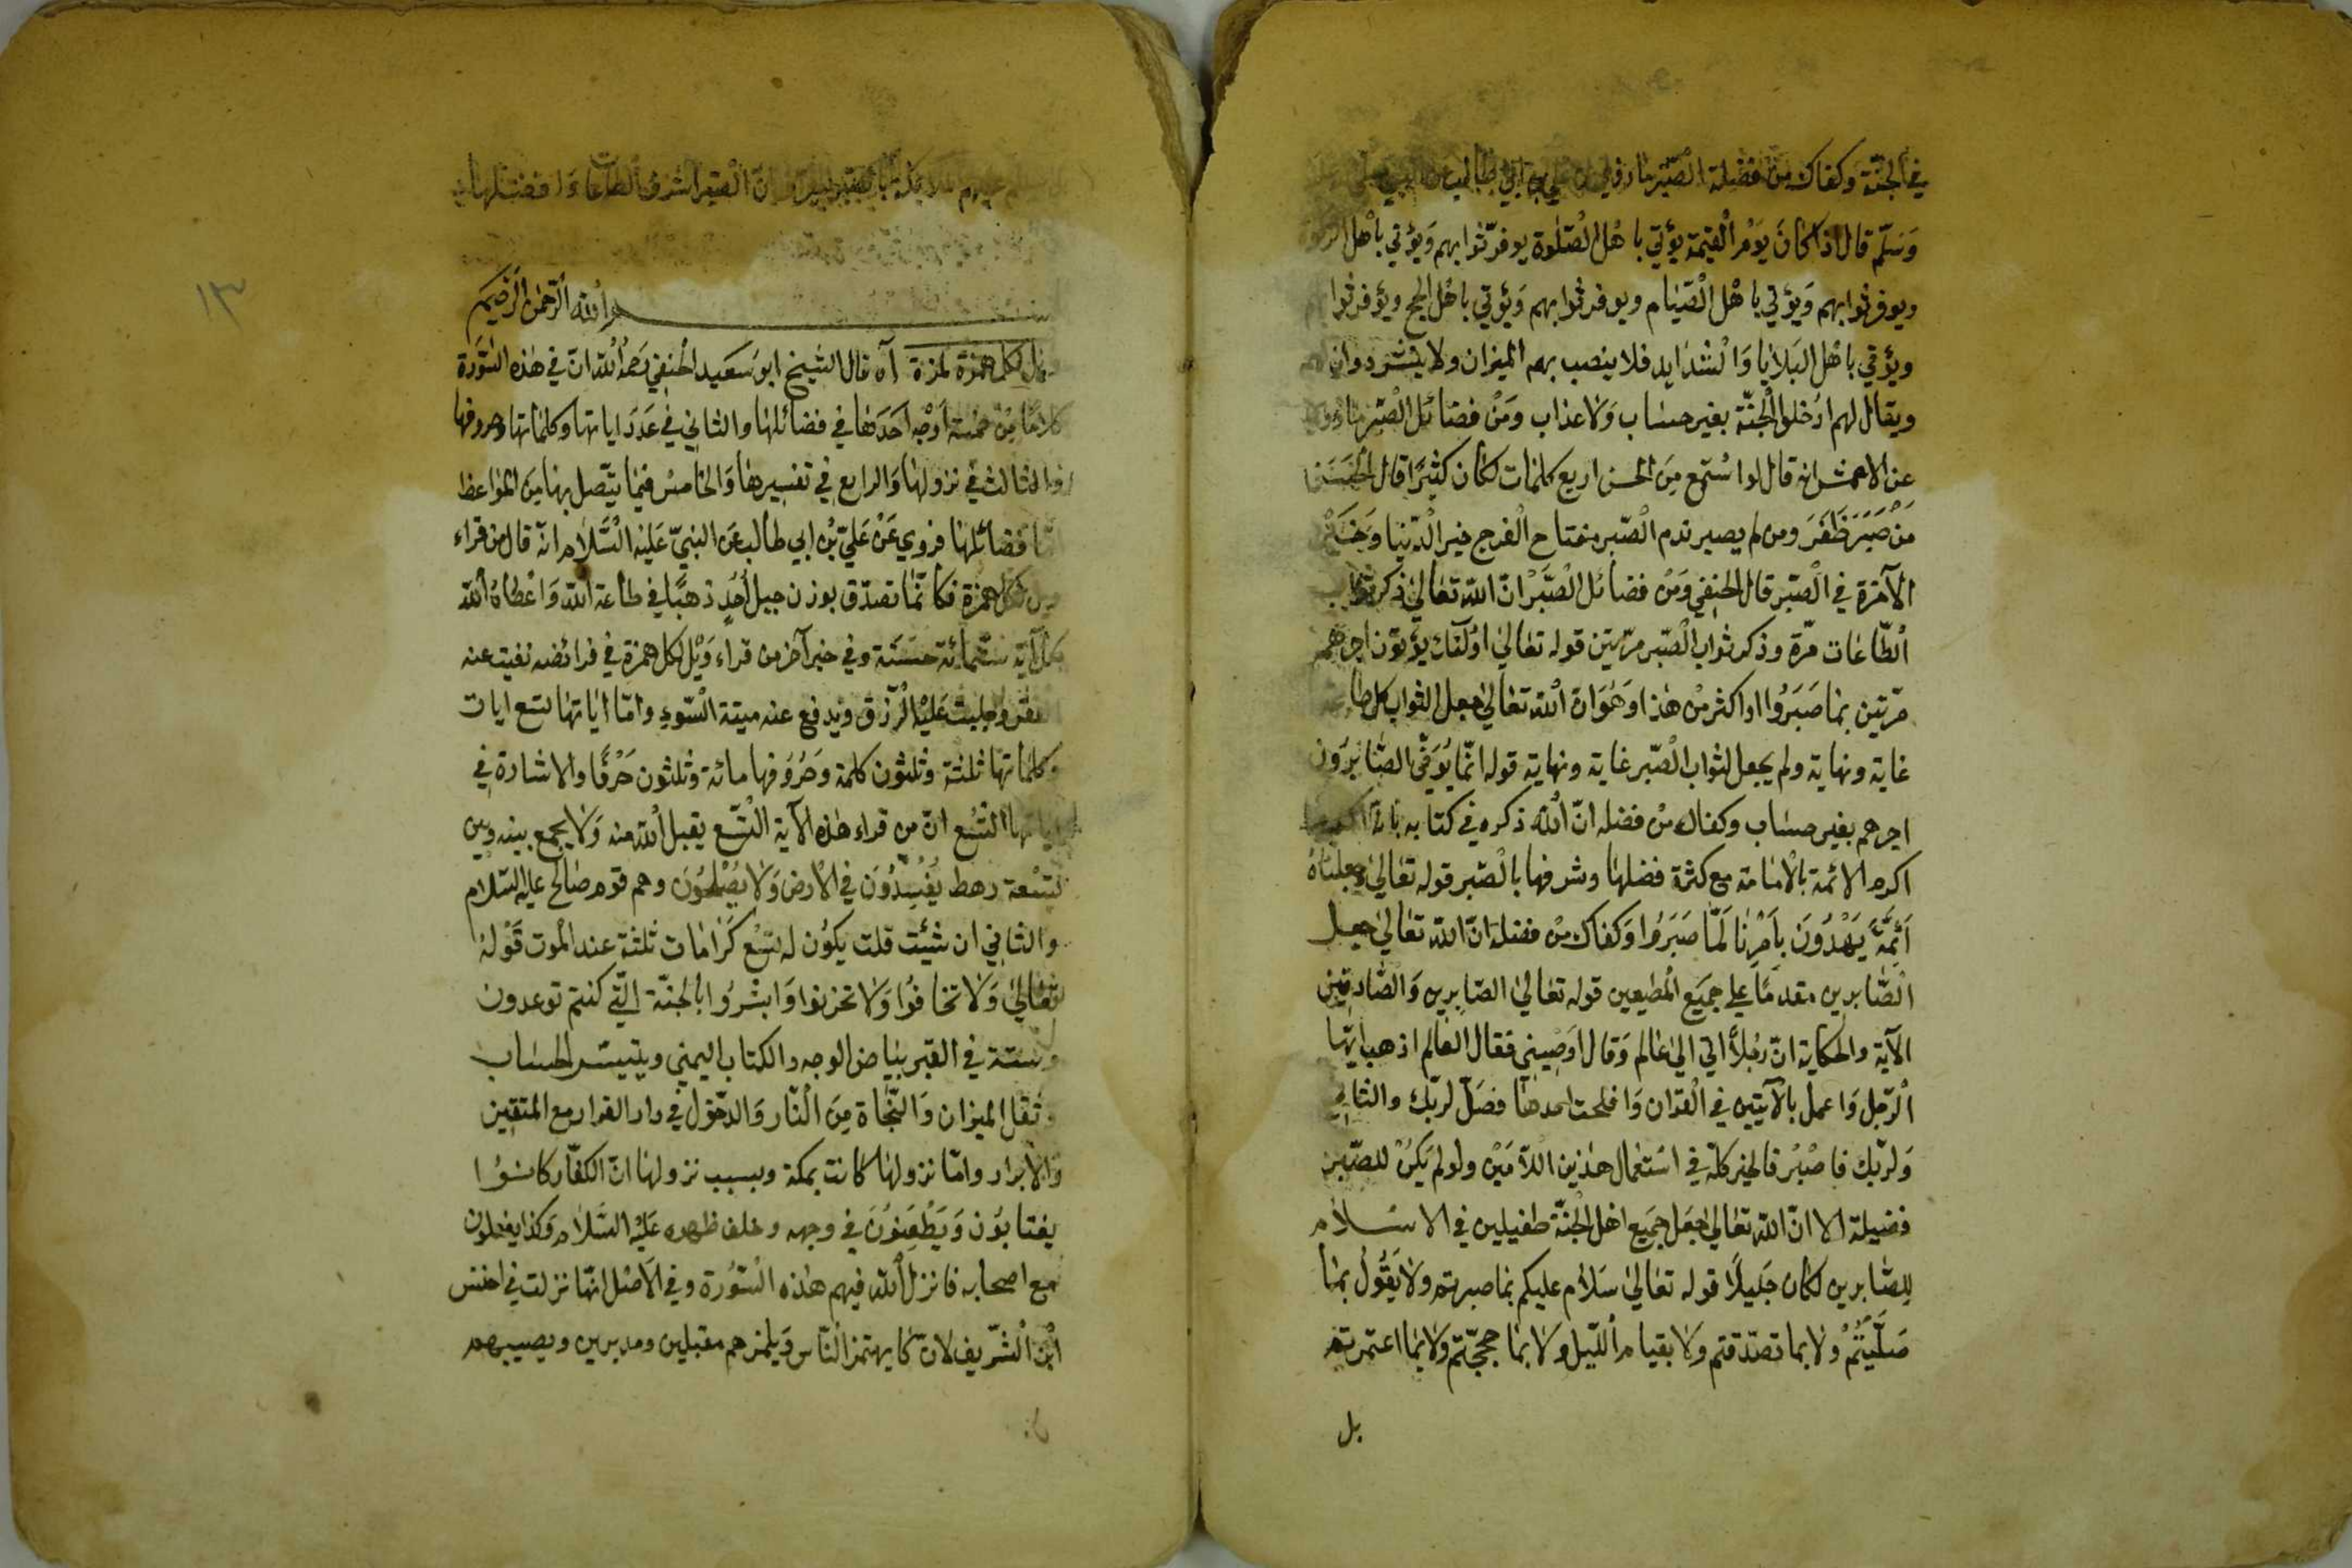 في الجنّة وكفاك من فضيلة الصّبر ما روي عن علي بن ابي طالب عن النبي صلي
وَسَلّم قال اذا كانَ يَوْم القيمة يؤتي باهْل الصّلوة يوفرّثوا بهم وَيؤتي باهْل
ويوفرثوا بهم وَيؤتي باهْل الصّيام ويوفرثوا بهم وَيؤتي باهْل الحج ويؤفرثوا
ويؤتي باهْل البَلايا وَالْشدايد فلا ينصب بهم الميزان ولا ينشر دوان
ويقال لهم ادْخلوا الْجنّة بغير حساب وَلا عذاب وَمنْ فضائل الْصّبر ما روي
عن الاعمش انه قال لوا سْتمع مِنَ الحسن اربع كلمات لكان كثيرًا قال الحَسَن
مَنْ صَبَرَ ظَفَرَ ومن لم يصبر ندم الْصّبر مفتاح الْفرج خير الْدّنيا وَخَيْر
الآخرة في الْصّبر قال الحنفي وَمن فضائل الْصّبْر انّ الله تعالي ذكر ثواب
الْطّاعات مرّة وذكر ثواب الْصّبر مرّتين قوله تعالي اولٓئك يؤتون اجرهم
مرّتين بما صَبَرُوا او اكثر منْ هذا وَهُوَ انّ الله تعالي جعل لثواب كل طاعة
غاية ونهاية ولم يجعل لثواب الْصّبر غاية ونهاية قوله انّما يُوَفّى الصّابرُون
اجرهم بغير حساب وكفاك منْ فضله انّ الله ذكره في كتابه بانه
اكرم الائمة بالْامامة مع كثرة فضلها وشرفها بالْصّبر قوله تعالي وجعلناهُ
اَئِمّةً يَهْدُونَ بِاَمْرِنا لَمّا صَبَرُوا وَكفاك منْ فضله انّ الله تعالي جعل
الْصّابرين مقدمًا علي جَميع الْمطيعين قوله تعالي الصّابرين وَالْصّادقين
الآية والحكاية انّ رجُلاً اتي الي عالم وَقال اوَصيني فقال العالم اذهب ايّها
الْرّجل وَاعمل بالآيتين في الْقرّان وَافلحت احدها فصَلّ لربّك والثاني
وَلربّك فاصْبرْ فالخير كلّه في اسْتعمال هذين اللّامَيْن ولو لم يَكنْ للصّبر
فضيلة الا انّ الله تعالي جَعَل جَميع اهل الْجنّة طفيلين في الاسْلام
للصّابرين لكان جَليلاً قوله تعالي سَلام عليكم بما صبرتم ولا يَقُولُ بما
صَلّيْتُمْ ولا بما تصدّقتم ولا بقيام اللّيل ولا بما حججّتم ولا بما اعتمرتم
بل
انّ الْصّبر اشرف الْطّاعات وَافضلها
١٣
الله الرّحمن الرّحيم
ويل لكل همزة لمزة آه قال الشيخ ابو سَعيد الْحنفي رَحمهُ الله انّ في هذه السّورة
كلامًا مِن خمسة اوَجْه احَدَها في فضائلها والثاني في عَدَدَ اياتها وكلماتها وحروفها
والثالث في نزولها وَالرابع في تفسيرها وَالخامسْ فيما يتّصل بها مِنَ المواعظ
امّا فضائلها فروي عَنْ عَليّ بْن ابي طالب عَن النبيّ عَليْه الْسَّلام انّه قال من قراء
ويل لكل همزة فكانّما تصدّق بوزن جبل اُحُدٍ ذهبًا في طاعة الله وَاعْطاهُ الله
بكلّ آية ستّمائة حسَنَة وفي خبر آخر من قراء وَيْل لكل همزة في فرائضه نفيت عنه
الفقر وجلبتْ عَليْه الْرّزق ويدفع عنه ميتة السّوء وامّا اياتها تسع ايات
وكلماتها ثلثة وثلثون كلمة وَحرُوفها مائة وثلثون حَرْفًا والاشارة في
اياتها التّسْع انّ من قراء هذه الآية الْتّسع يقبل الله منه وَلا يجمع بينه وبين
تسْعة رهط يُفْسِدُونَ في الارض وَلا يُصْلِحُونَ وهم قوم صالح عليه السّلام
والثاني ان شئت قلت يكون له تسْع كرامات ثلثة عند الْموت قَوْلهُ
تعالي وَلا تخافُوا وَلا تحزنوا وَابشْرُوا بالْجنّة الّتي كنتم توعدون
وستة في القبر بياض الوجه والكتاب اليمني ويتيسّر الحساب
وثقل الميزان وَالنّجاة مِنَ الْنّار وَالدّخول في دار القرار مع المتقين
وَالابرار وامّا نزولها كانت بمكة وسبب نزولها انّ الكفّار كانوُا
يغتابوُن وَيَطْعنونَ في وجهه وخلف ظهره عَليْه السَّلام وَكذا يفعلون
مع اصحابه فانزل الله فيهم هذه الْسّورة وفي الاَصْل انّها نزلت في اخنس
ابْن الْشّريف لانّ كا يهتمز النّاس وَيلمزهم مقبلين ومدبرين ويصيبهم